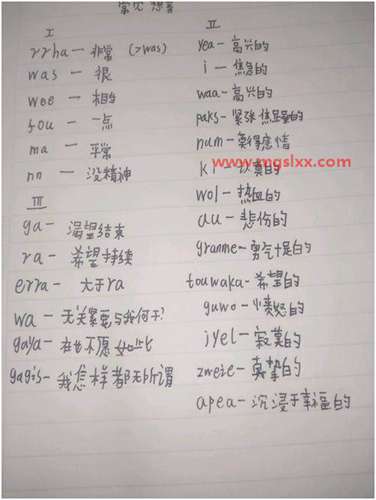 常见想音
I
rrha — 非常 (>was)
was — 很
wee — 相当
fou — 一点
ma — 平常
nn — 没精神
III
ga — 渴望结束
ra — 希望持续
erra — 大于ra
wa — 无关紧要与我何干?
gaya — 再也不愿如此
gagis — 我怎样都无所谓
II
yea — 高兴的
i — 焦急的
waa — 高兴的
paks — 紧张焦虑的
num — 莫得感情
ki — 认真的
www.mgslxx.com
wol — 热血的
au — 悲伤的
granme — 勇气十足的
touwaka — 希望的
guwo — 愤怒的
jyel — 寂寞的
zweie — 真挚的
apea — 沉浸于幸福的